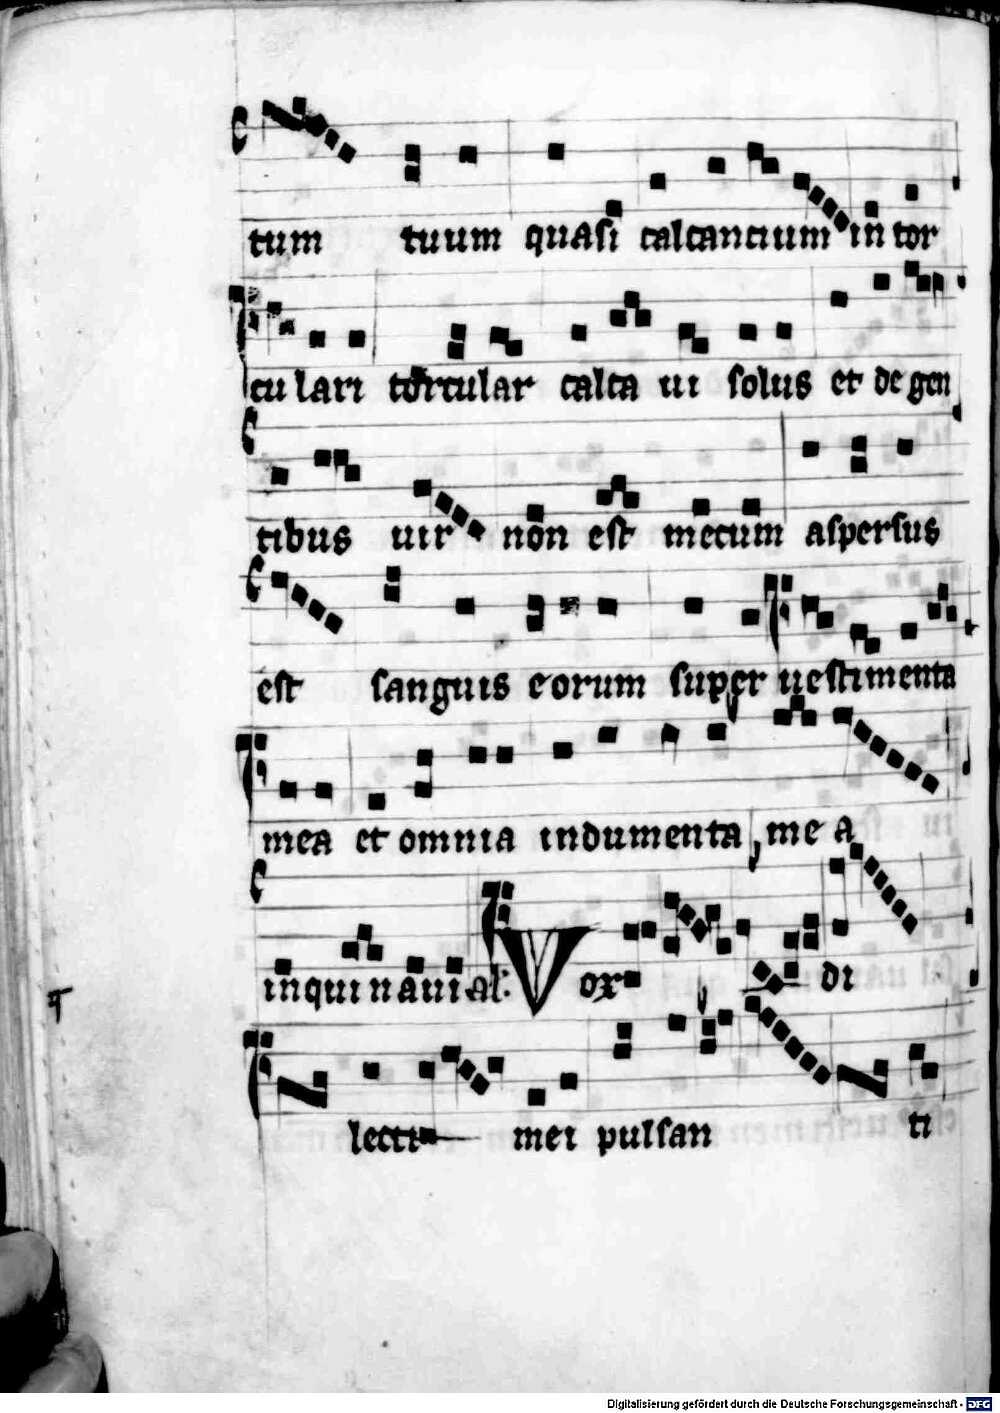 tum tuum quasi calcancium in tor
culari torcular calca ui solus et de gen
tibus uir non est mecum aspersus
est sanguis eorum super uestimenta
mea et omnia indumenta mea
inquinaui al' Vox di
lecti mei pulsan ti
Digitalisierung gefördert durch die Deutsche Forschungsgemeinschaft - DFG